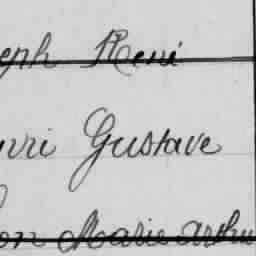 eph René
nri Gustave
on Marie Arthu